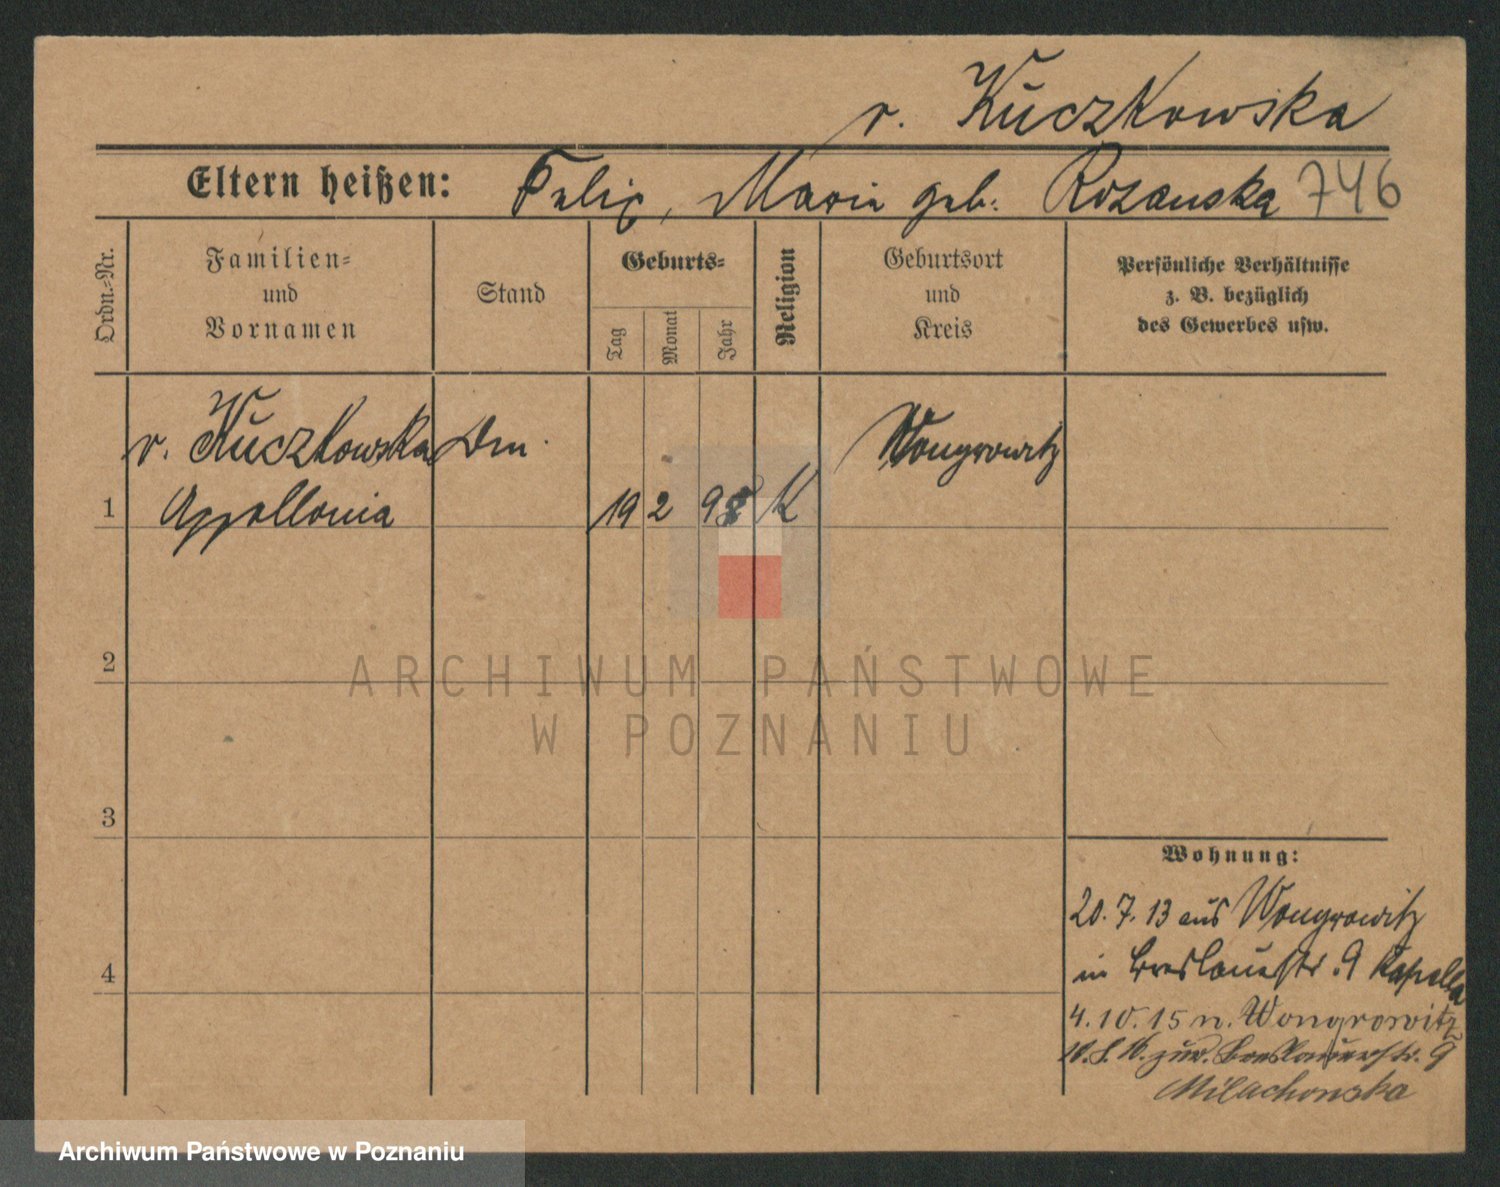 v. Kuczkowska
Eltern heißen: Felix, Marie geb. Rozanska 746
Ordn.=Nr.
Familien=
und
Vornamen
Stand
Geburts=
Tag
Monat
Jahr
Religion
Geburtsort
und
Kreis
Persönliche Verhältnisse
z. B. bezüglich
des Gewerbes usw.
v. Kuczkowska Wongrowitz
1 Appollonia 19 2 98 K
2
3
4
Wohnung:
20. 7. 13 aus Wongrowitz
in Breslauerstr. 9 Kapella
4. 10. 15 n. Wongrowitz
zur. Breslauerstr. 9
Milachowska
ARCHIWUM PAŃSTWOWE
W POZNANIU
Archiwum Państwowe w Poznaniu